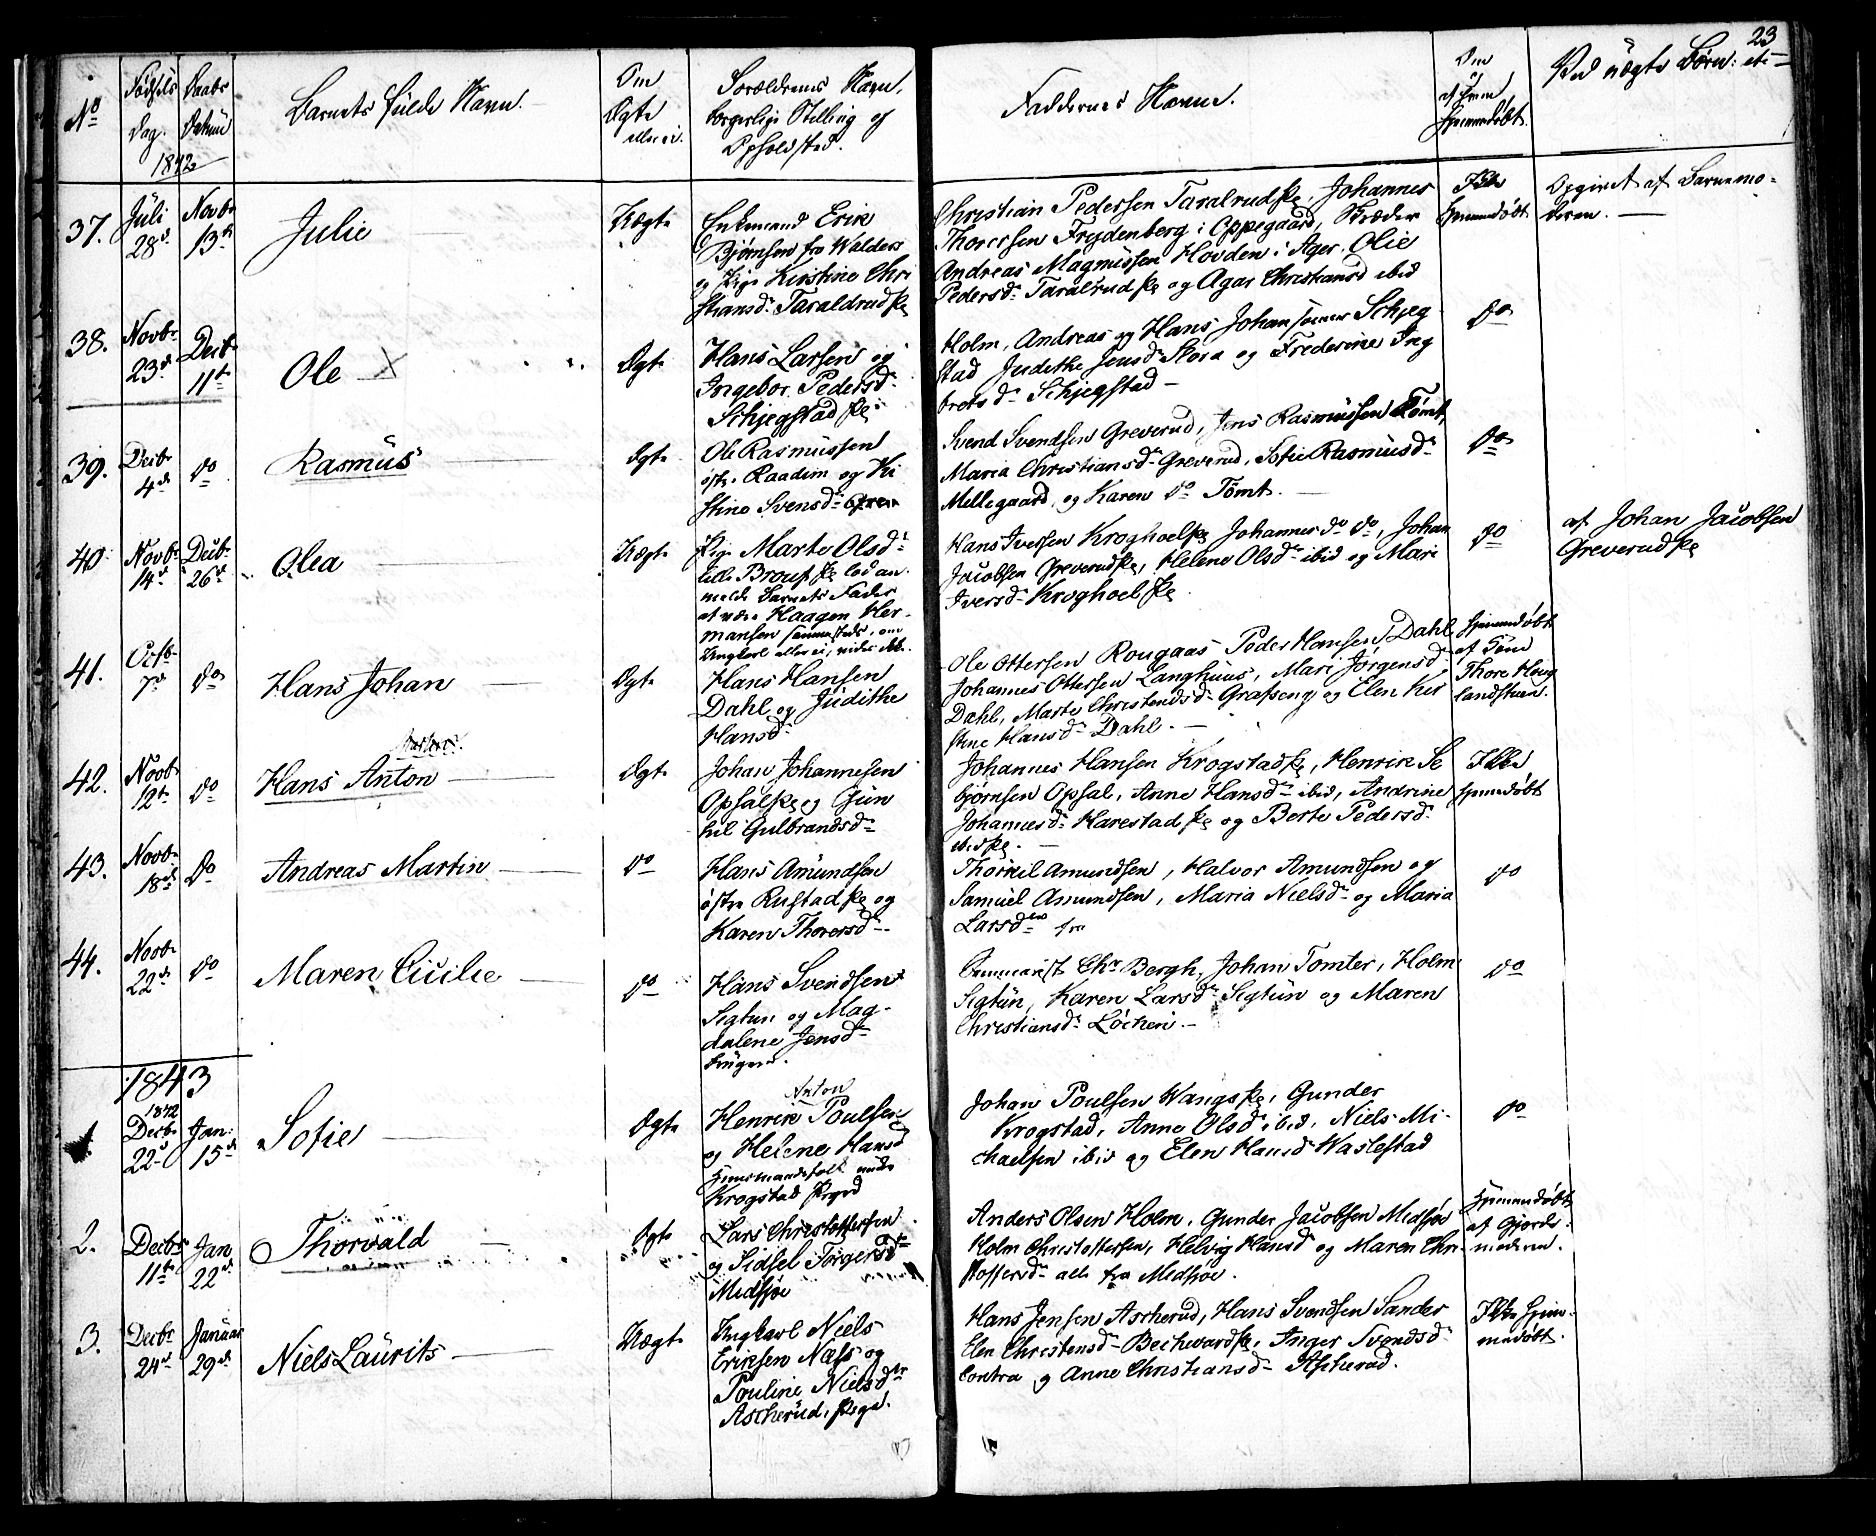 23
No
Fødsels
Dag.
1842
Daabs
Datum
Barnets fulde Navn.
Om
Ægte
eller ei.
Forældrenes Navn,
borgerlige Stilling og
Opholdsted.
Faddernes Navne.
Om
Hjemmedøbt.
Ved uægte Børn:
37.
Juli
28d
Novb
13d
Julie
Uægte
Enkemand Erik
Bjørnsen fra Walders
og Pige Kirstine Chri
stiansd. Taraldrud
Christian Pedersen Taralrud, Johannes
Thoresen Frydenberg i Oppegaard, Skræder
Andreas Magnussen Hovden i Ager. Olie
Pedersd. Taralrud og Agar Christiansd ibid
Ikke
Hjemmedøbt
Opgivet af Barnemo-
deren.
38.
Novb.
23d
Decb.
11t
Ole X
Ægte
Hans Larsen og
Ingebor Pedersd.
Schjegstad
Holm, Andreas og Hans Johansønner Schjeg
stad Judithe Jensd. Skora og Frederine Ing
bretsd. Schjegstad
do
39.
Decb.
4d
do
Rasmus
Ægte
Ole Rasmussen
østre Raadim og Ki
stine Svensd.
Svend Svendsen Greverud, Jens Rasmussen Tømt,
Maria Christiansd. Greverud, Sofie Rasmusd.
Mellegaard, og Karen do Tømt.
do
40.
Novb.
14d
Decb.
26d
Olea
Uægte
Pige Marte Olsd.
lille Brout lod an
melde Barnets Fader
at være Haagen Her-
mansen sammesteds, om
Ungkarl eller ei, vides ikke.
Hans Iversen Kroghoel, Johannes do do, Johan
Jacobsen Greverud, Helene Olsd. ibid og Mari
Iversd. Kroghoel
do
af Johan Jacobsen
Greverud
41.
Octb.
7d
do
Hans Johan
Ægte
Hans Hansen
Dahl og Judithe
Hansd.
Ole Ottersen Rougaas Peder Hansen Dahl
Johannes Ottersen Langhuus, Mari Jørgensd.
Dahl, Marte Christensd. Grafseng og Elen Kir
stine Hansd. Dahl.
Hjemmedøbt
af
Thore Houg
landstuen.
42.
Novb
12t
do
Hans Anton
Ægte
Johan Johannesen
Opsal og Gun
hil Gulbrandsd.
Johannes Hansen Krogstad, Henrik Se
bjørnsen Opsal, Anne Hansd. ibid, Andrine
Johannesd. Harestad og Berte Pedersd.
ibid.
Ikke
Hjemmedøbt
43.
Novb.
18d
Do
Andreas Martin
do
Hans Amundsen
østre Rustad og
Karen Thoresd.
Thorkil Amundsen, Halvor Amundsen og
Samuel Amundsen, Maria Nielsd. og Maria
Larsd. fra
do
44.
Novb.
22d
do
Maren Cicilie
do
Hans Svendsen
Sigtun og Mag-
dalene Jensd.
Chr Bergh, Johan Tomter, Holm
Sigtun, Karen Larsd. Sigtun og Maren
Christiansd. Løchen.
do
1843
1
1842
Decb.
22d
Jan.
15d
Sofie
Ægte
Anton
Henrik Poulsen
og Helene Hansd
Huusmandsfolk under
Krogstad
Johan Poulsen Wangs, Gunder
Krogstad, Anne Olsd ibid, Niels Mi-
chaelsen ibid og Elen Hansd Wastestad
do
2.
Decb
11t
Jan
22d
Thorvald
Ægte
Lars Christoffersen
og Sidsel Jørgensd.
Midsjøe
Anders Olsen Holm, Gunder Jacobsen Midsjøe
Holm Christoffersen, Helvig Hansd og Maren Chri
stoffersd. alle fra Midsjøe.
Hjemmedøbt
af Gjorde-
moderen.
3.
Decbr
24d
Januar
29d
Niels Laurits
Uægte
Ungkarl Niels
Eriksen Næss og
Pouline Nielsd.
Ascherud,
Hans Jensen Ascherud, Hans Svendsen Sander
Elen Christensd. Bechevard, Inger Svendsd.
Contra og Anne Christiansd. Ascherud.
Ikke Hjem-
medøbt.